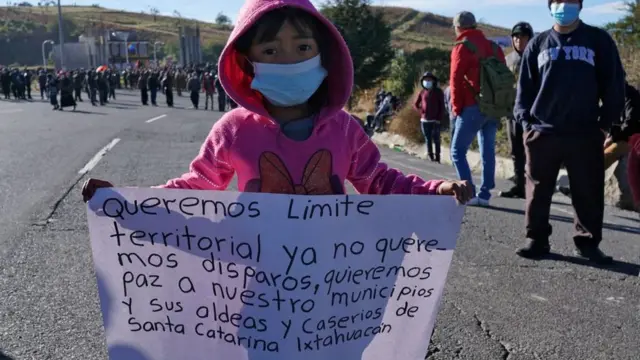 Queremos Limite
territorial ya no quere-
mos disparos, quieremos
paz a nuestro municipios
y sus aldeas y Caserios de
Santa Catarina Ixtahuacán
NEW YORK